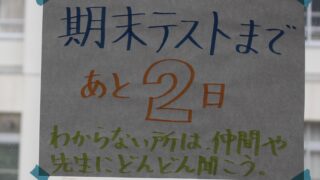 期末テストまで
あと2日
わからない所は、仲間や
先生にどんどん聞こう。